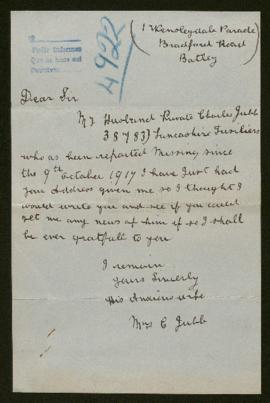 4922
(1 Wensleydale Parade
Bradford Road
Batley
Dear Sir
My Husband Private Charles Jubb
38783) Lancashire Fusiliers
who as been reported Missing since
the 9th October 1917 I have Just had
your Address given me so I thought I
would write you and see if you could
get me any news of him if so I shall
be ever gratefull to you
I remain
Yours Sincerly
His Anxious wife
Mrs C Jubb